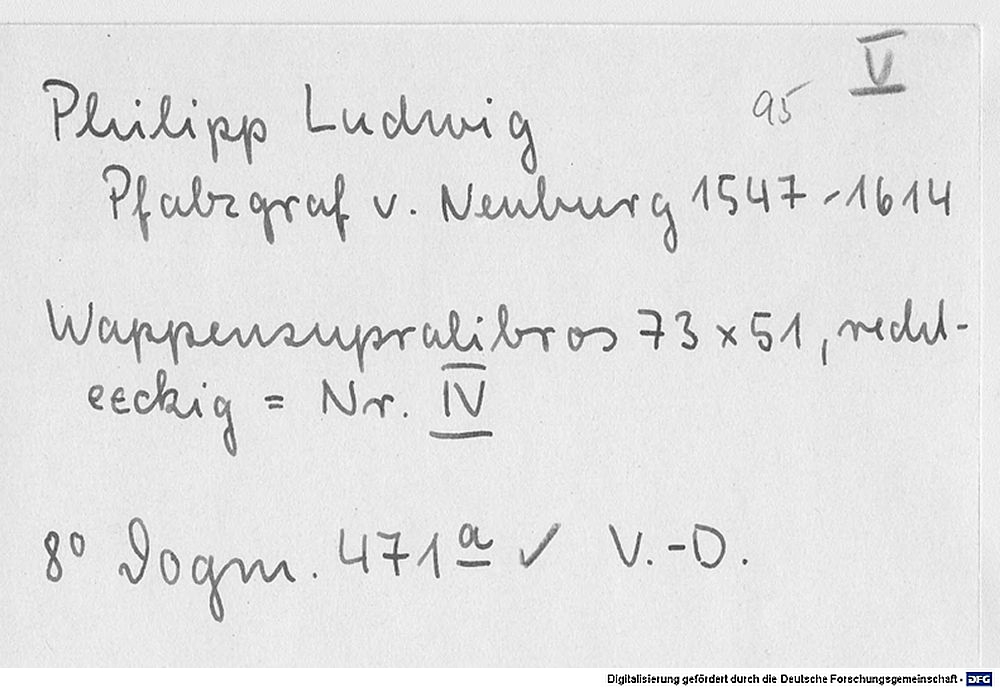 V
95
Philipp Ludwig
Pfalzgraf v. Neuburg 1547-1614
Wappensupralibros 73 x 51, recht-
eeckig = Nr. IV
8° Dogm. 471 a ✓ V.-D.
Digitalisierung gefördert durch die Deutsche Forschungsgemeinschaft - DFG